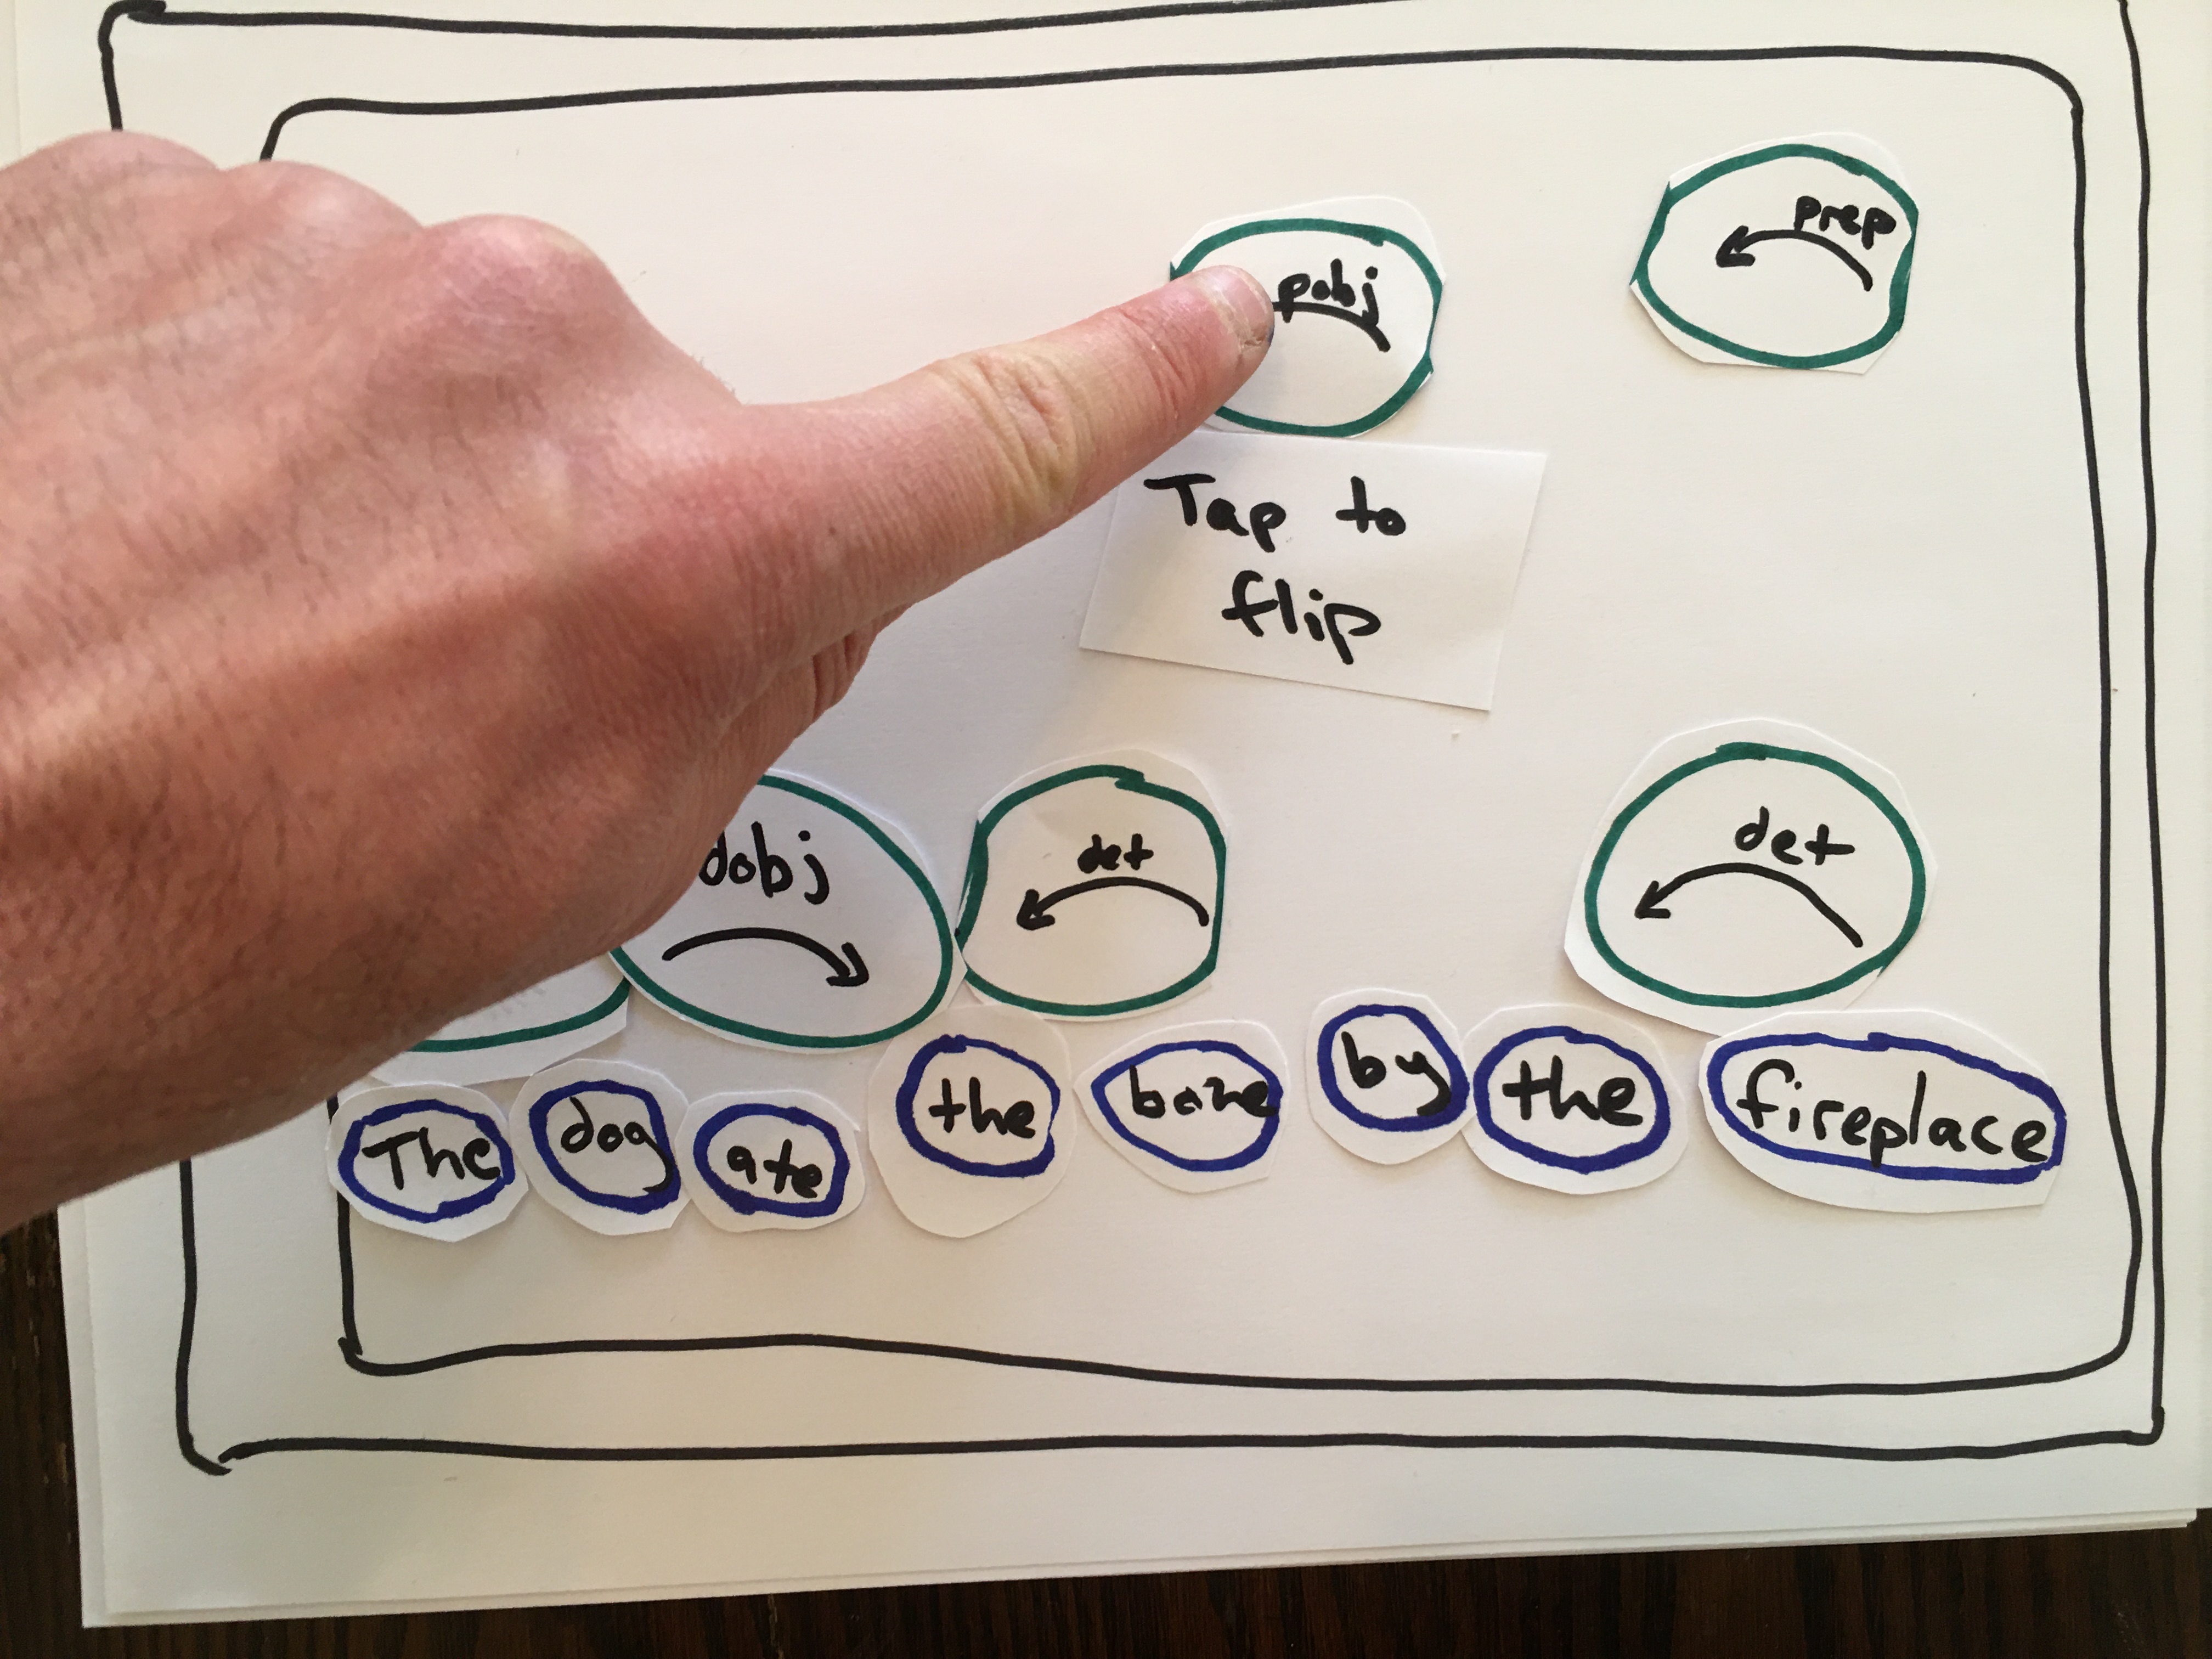 prep
pobj
Tap to
flip
dobj
det
det
The dog ate the bone by the fireplace